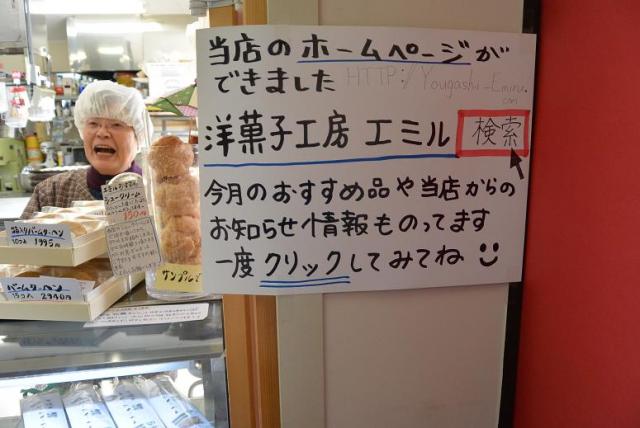 当店のホームページが
できました HTTP://Yougashi-Emiru.
com
洋菓子工房 エミル 検索
今月のおすすめ品や当店からの
お知らせ情報ものってます
一度クリックしてみてね
シュークリーム
150円
サンプルです
箱入りバームクーヘン
10コ入 1995円
バームクーヘン
15コ入 2940円